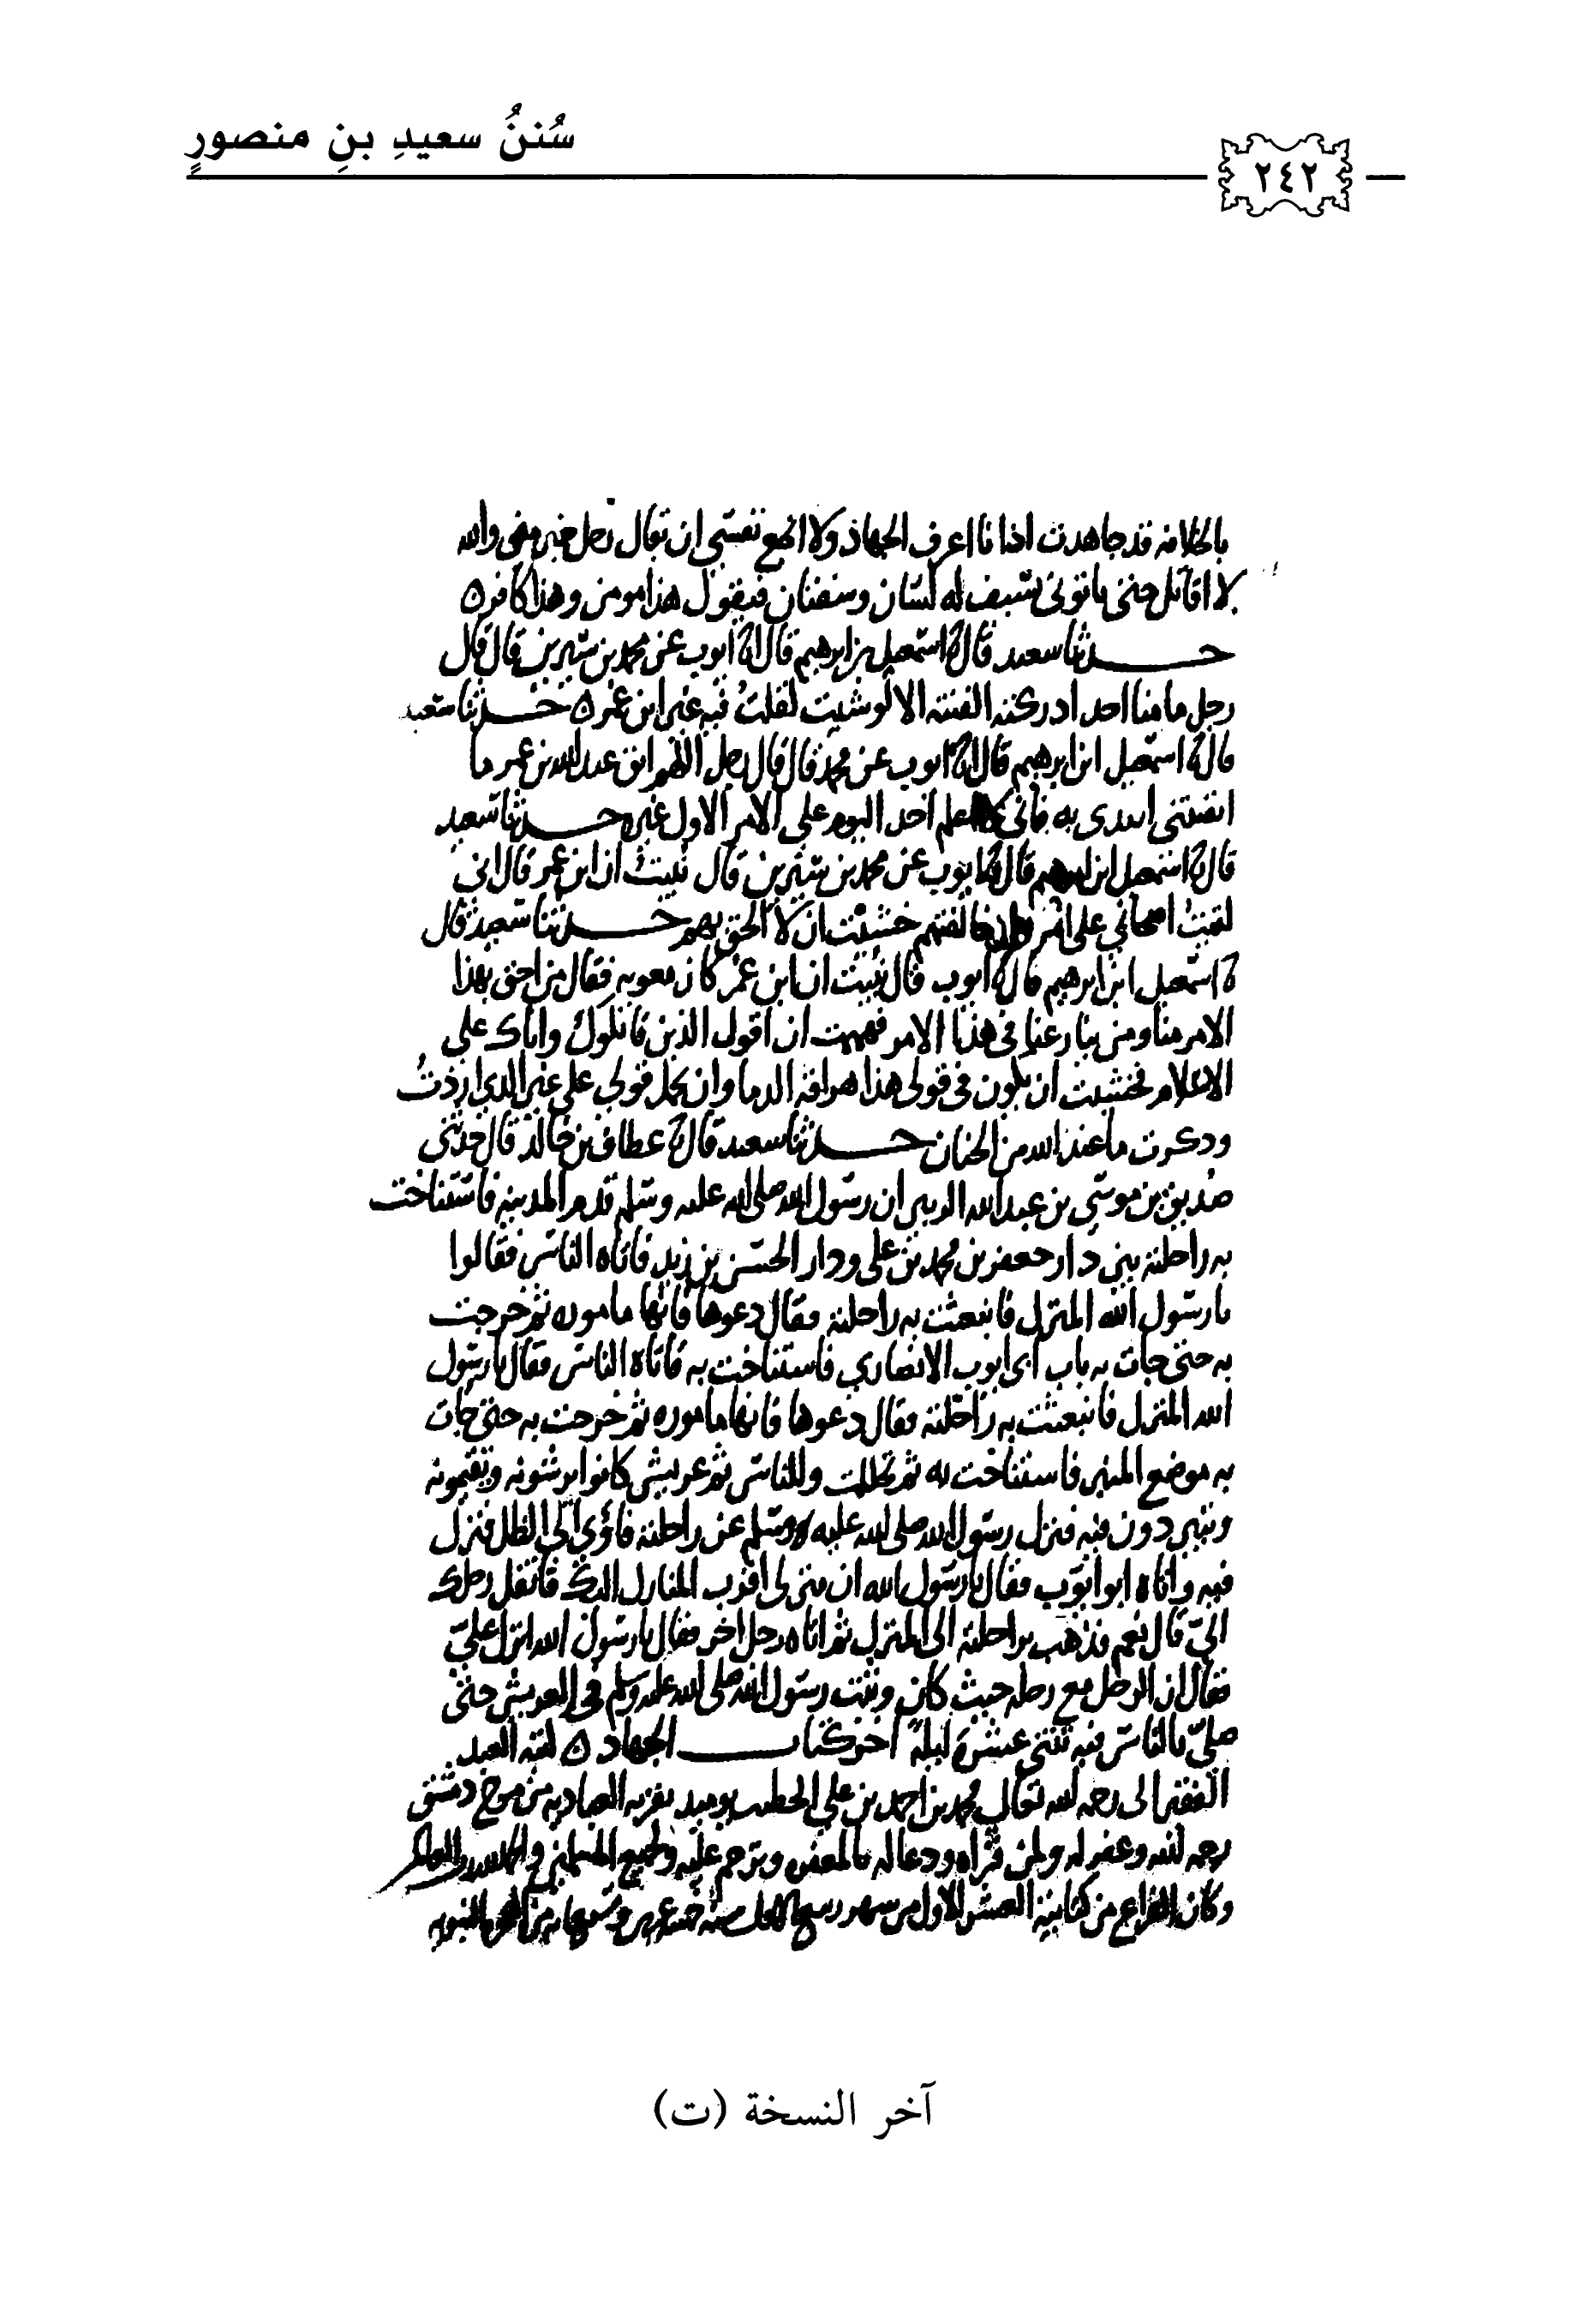 سُننُ سعيدِ بنِ منصورٍ
٢٤٢
بالخلافة قد جاهدت اذ انا اعرف الجهاد ولا ابخع نفسي ان كان رجل خير مني والله
لا اقاتل حتى ياتوني بسيف له لسان وشفتان فيقول هذا مومن وهذا كافر
حدثنا سعيد قال نا اسمعيل بن ابرهيم قال انا ايوب عن محمد بن سيرين قال قال
رجل ما منا احد ادركته الفتنة الا لو شيت لقلت فيه غير ابن عمر حدثنا سعيد
قال نا اسمعيل ابن ابرهيم قال انا ايوب عن محمد قال قال رجل اللهم ابق عبد الله بن عمر ما
ابقيتني اقتدي به فاني لا اعلم احد اليوم على الامر الاول غيره حدثنا سعيد
قال نا اسمعيل ابن ابرهيم قال نا ايوب عن محمد بن سيرين قال نبيت ان ابن عمر قال اني
لقيت اصحابي على امر واني ان خالفتهم خشيت ان لا الحق بهم حدثنا سعيد قال
نا اسمعيل ابن ابرهيم قال نا ايوب قال نبيت ان ابن عمر كان معوية فقال من احق بهذا
الامر منا ومن ينازعنا في هذا الامر فهممت ان اقول الذين قاتلوك واباك على
الاسلام فخشيت ان يكون في قولي هذا هراقة الدما وان يحمل قولي على غير الذي اردت
وذكرت ما عند الله من الجنان حدثنا سعيد قال نا عطاف بن خالد قال حدثني
صديق بن موسى بن عبد الله الزبير ان رسول الله صلى الله عليه وسلم قدم المدينة فاستناخت
به راحلته بين دار جعفر بن محمد بن علي ودار الحسن بن زيد فاتاه الناس فقالوا
يا رسول الله المنزل فانبعثت به راحلته فقال دعوها فانها مامورة ثم خرجت
به حتى جات به باب ابي ايوب الانصاري فاستناخت به فاتاه الناس فقال يا رسول
الله المنزل فانبعثت به راحلته فقال دعوها فانها مامورة ثم خرجت به حتى جات
به موضع المنبر فاستناخت به ثم تحللت وللناس ثم عريش كانوا يرشونه ويقيمونه
ويتبردون فيه فنزل رسول الله صلى الله عليه وسلم عن راحلته فاوى الى الظل فنزل
فيه واتاه ابو ايوب فقال يا رسول الله ان منزلي اقرب المنازل اليك فانقل رحلك
اليّ قال نعم فذهب براحلته الى المنزل ثم اتاه رجل اخر فقال يا رسول الله انزل عليّ
فقال ان الرجل مع رحله حيث كان وثبت رسول الله صلى الله عليه وسلم في العريش حتى
صلى بالناس فيه ثنتي عشرة ليلة اخر كتاب الجهاد كتبه العبد
الفقير الى رحمة الله تعالى محمد بن احمد بن علي الخطيب يوميد بقرية العبادية من مرج دمشق
رحمه الله وغفر له ولمن قراه ودعا له بالمغفرة وترحم عليه ولجميع المسلمين والحمد لله رب العالمين
وكان الفراغ من كتابته العشر الاول من شهر ربيع سنة من الهجرة النبوية
آخر النسخة (ت)